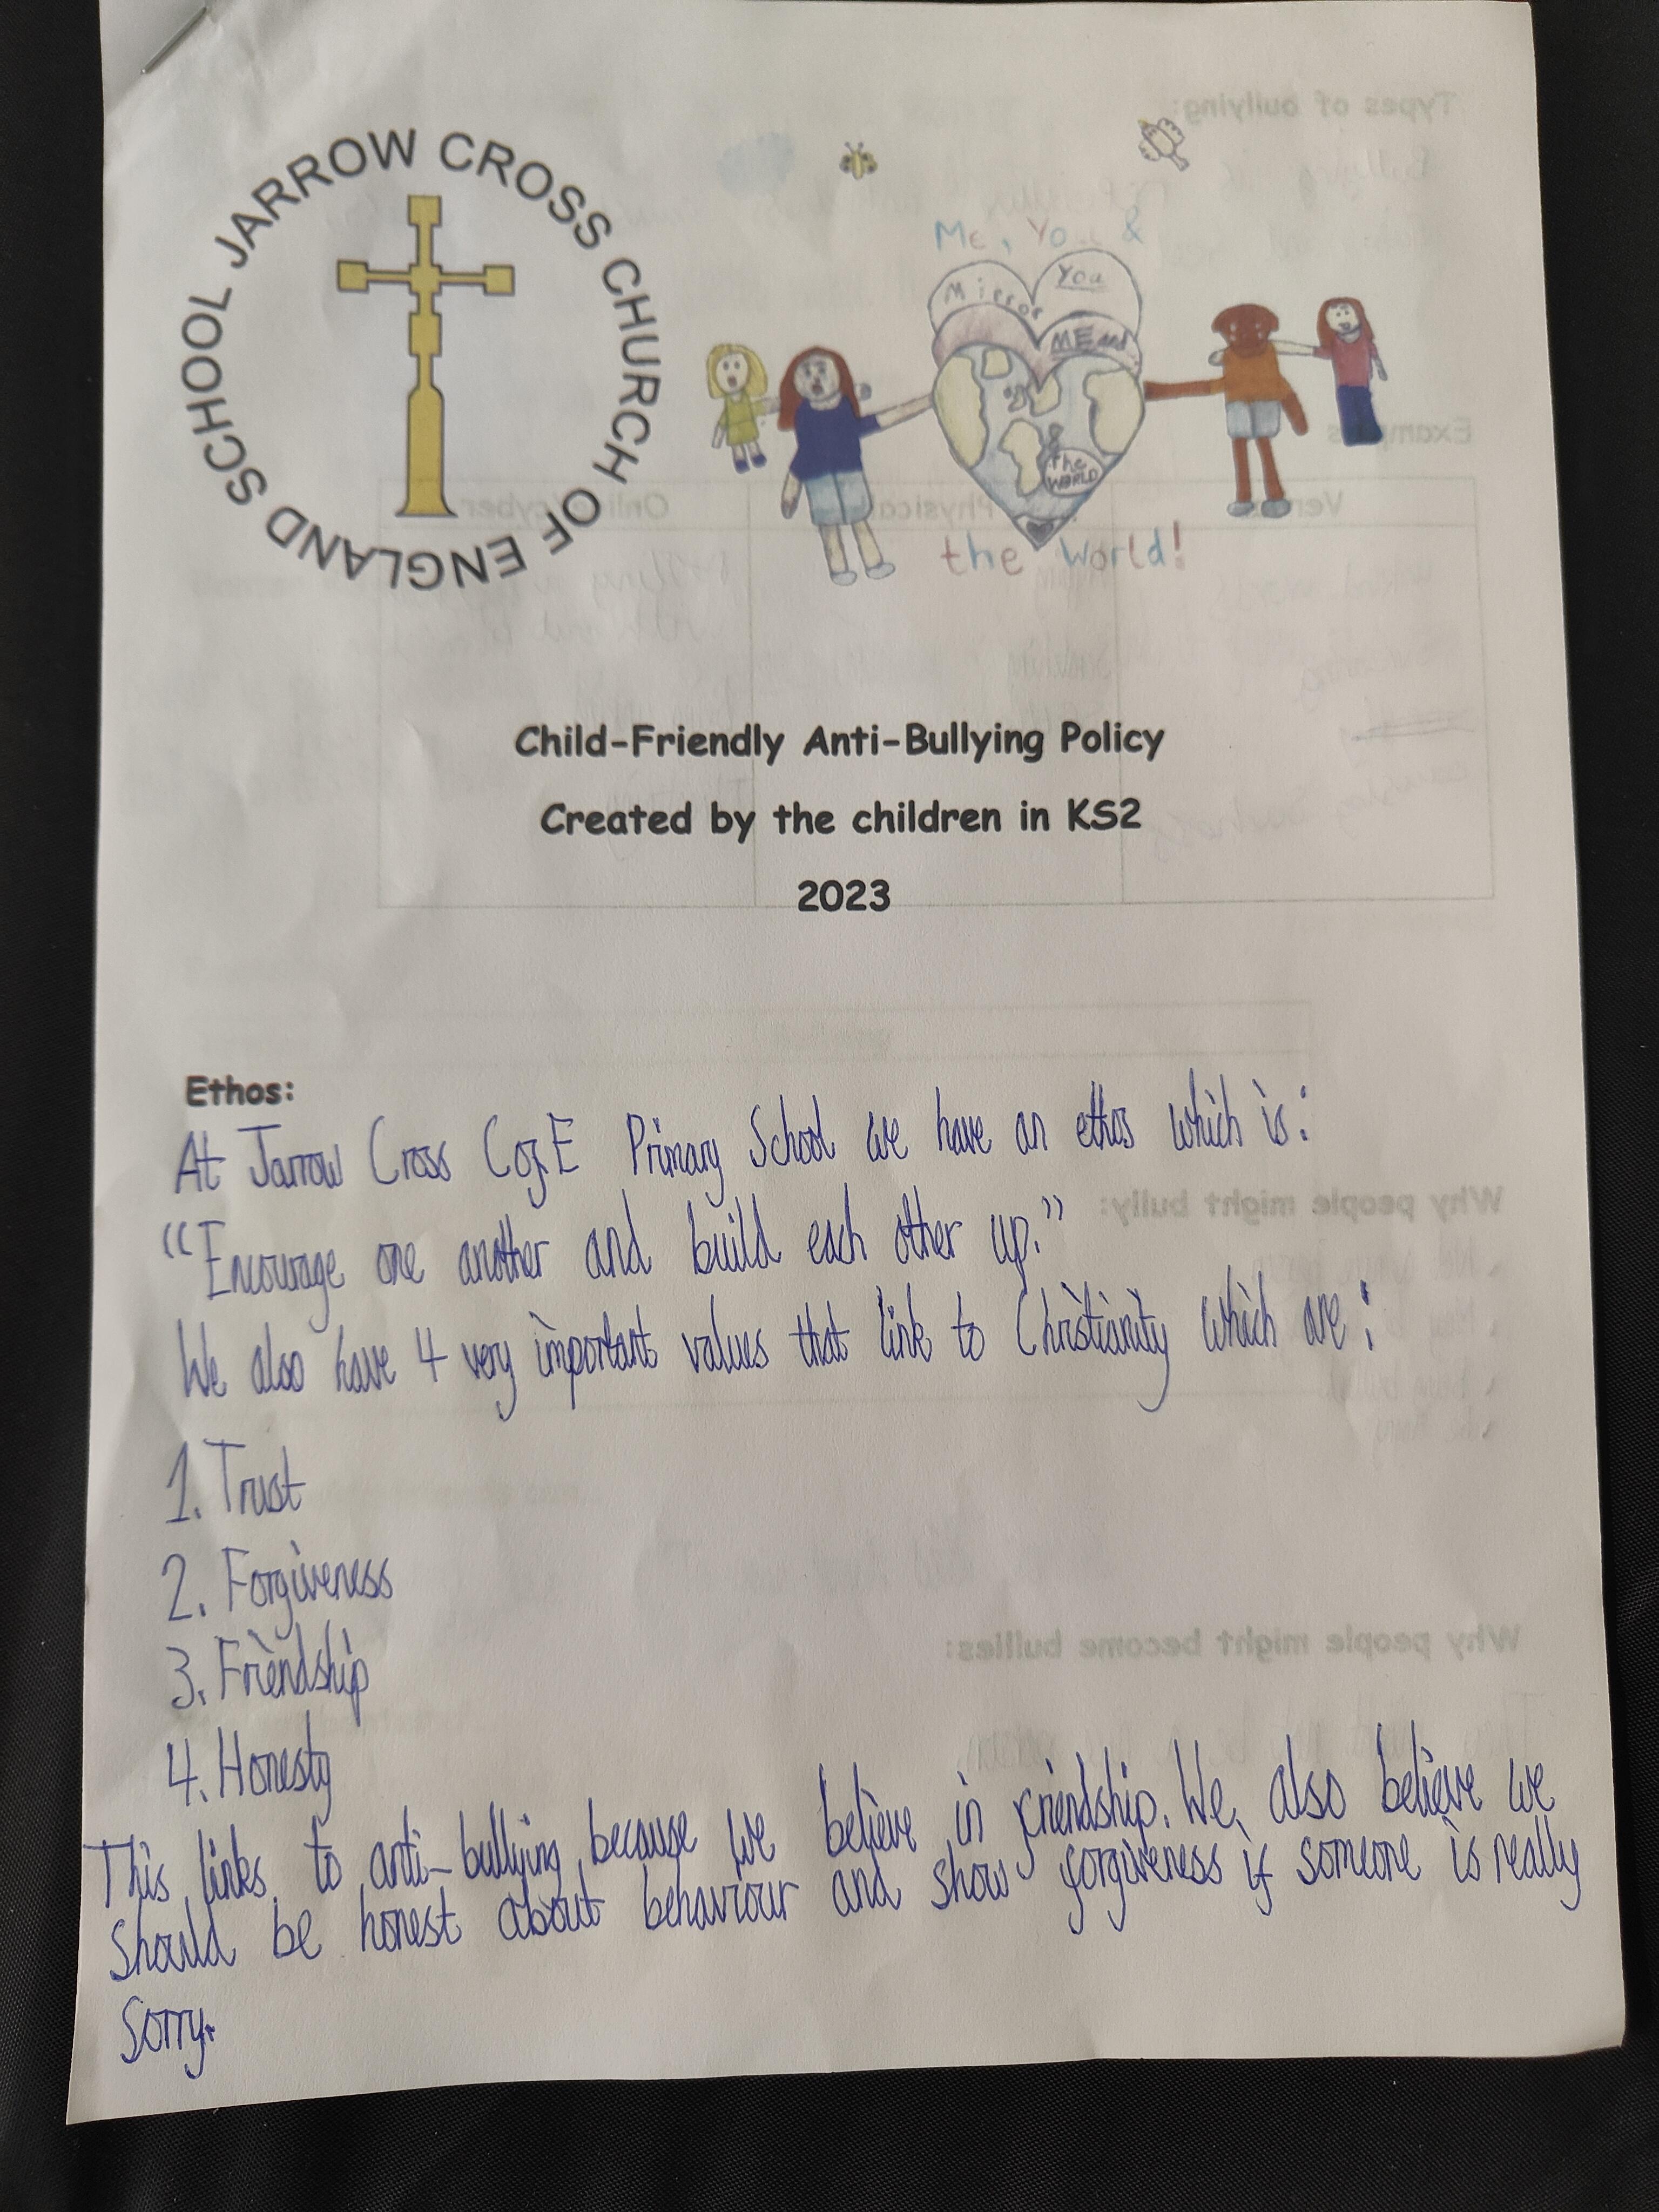 JARROW CROSS CHURCH OF ENGLAND SCHOOL
Me, You &
Mirror
You
ME and
&
the
WORLD
the World!
Child-Friendly Anti-Bullying Policy
Created by the children in KS2
2023
Ethos:
At Jarrow Cross CofE Primary School we have an ethos which is:
"Encourage one another and build each other up."
We also have 4 very important values that link to Christianity which are:
1. Trust
2. Forgiveness
3. Friendship
4. Honesty
This links to anti-bullying because we believe in friendship. We also believe we
should be honest about behaviour and show forgiveness if someone is really
sorry.
Types of bullying:
Bullying
Examples
Verbal
Physical
Online/cyber
Why people might bully:
Why people might become bullies: